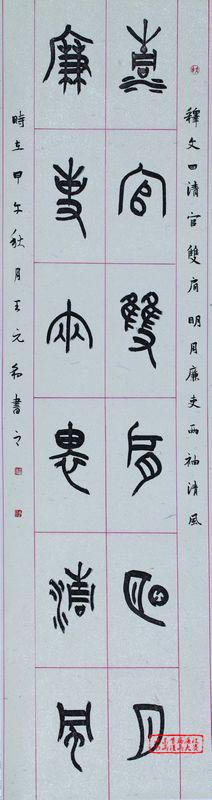 釋文曰清官雙肩明月廉吏兩袖清風
清官雙肩明月
廉吏兩袖清風
時在甲午秋月王元書之